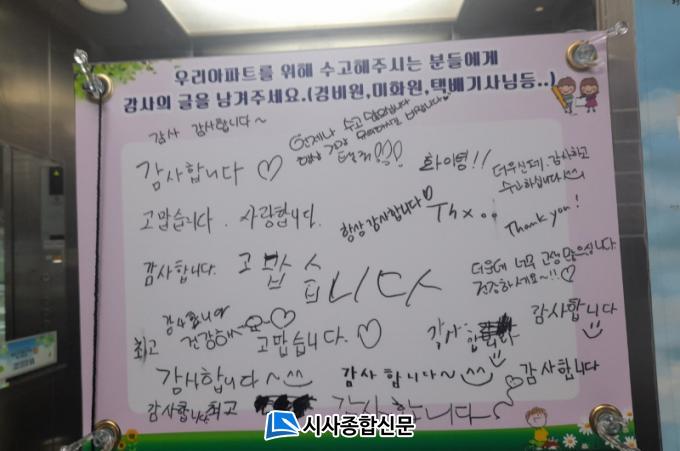 우리아파트를 위해 수고해주시는 분들에게
감사의 글을 남겨주세요.(경비원,미화원,택배기사님등..)
감사 감사합니다~
언제나 수고 많으십니다
항상 건강
감사합니다 ♡
화이팅!!
더우신데. 감사하고
수고하십니다
고맙습니다. 사랑합니다.
항상 감사합니다♡
Thx..
Thank you!
감사합니다.
고맙습니다
더운데 너무 고생 많으십니다.
건강하세요~!!♡
감사합니다
최고
건강해
고맙습니다. ♡
감사
합니다
감사합니다
감사합니다~^^
감사합니다~^^
감사합니다
감사합니다 최고
감사합니다
시사종합신문